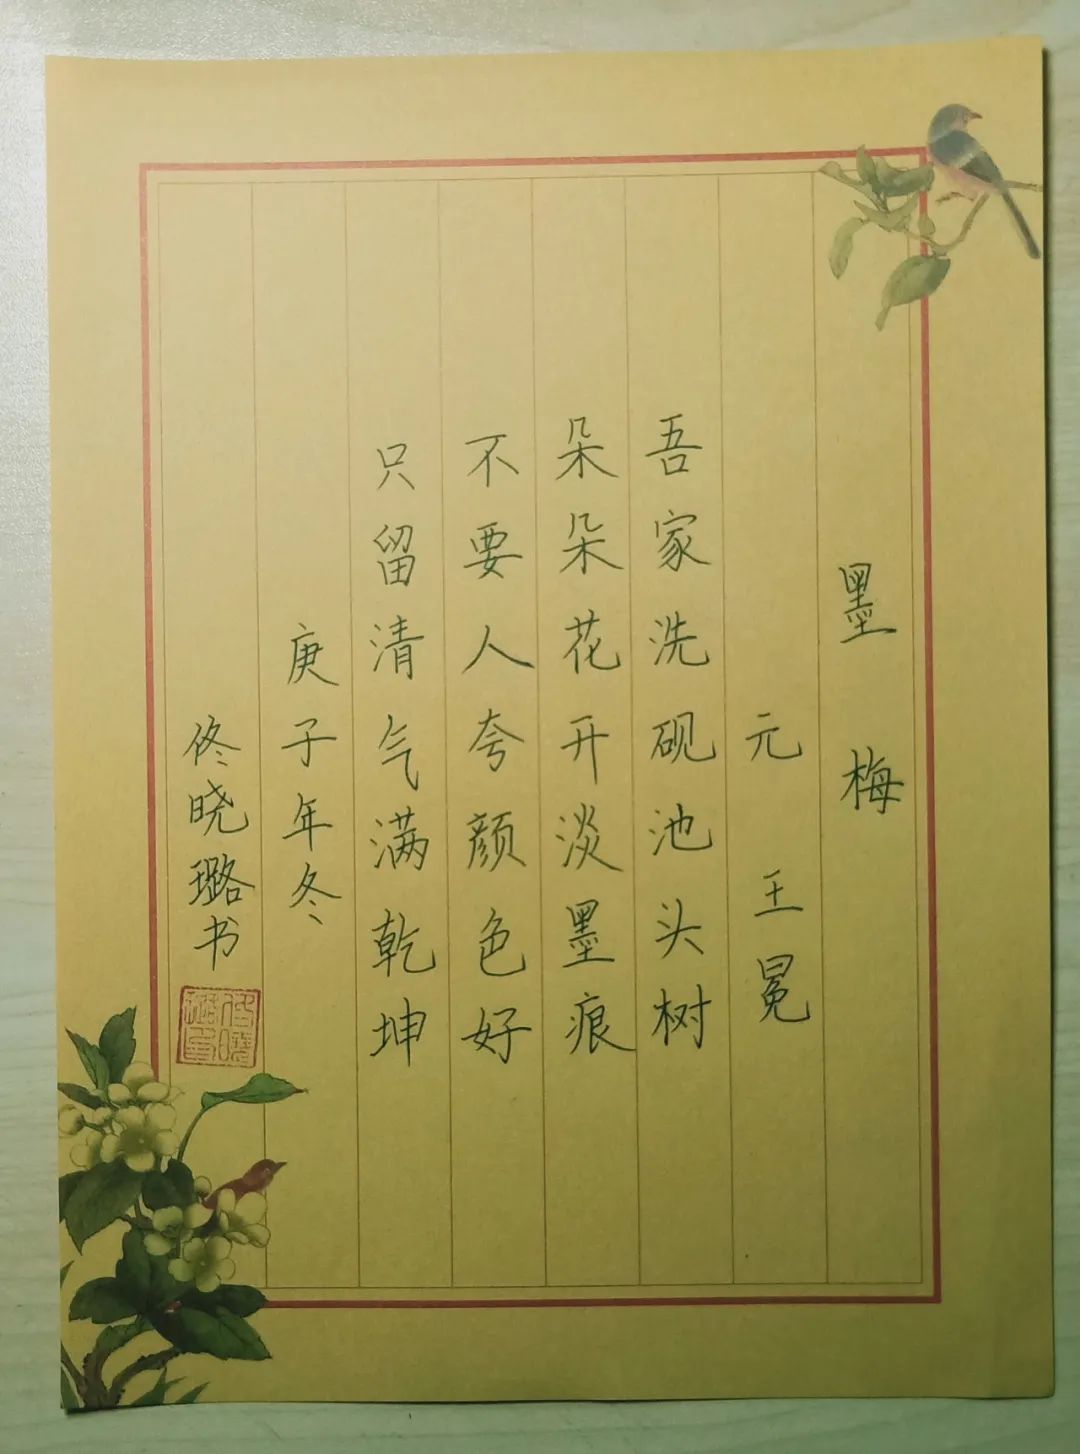 墨梅
元 王冕
吾家洗砚池头树
朵朵花开淡墨痕
不要人夸颜色好
只留清气满乾坤
庚子年冬
佟晓璐书